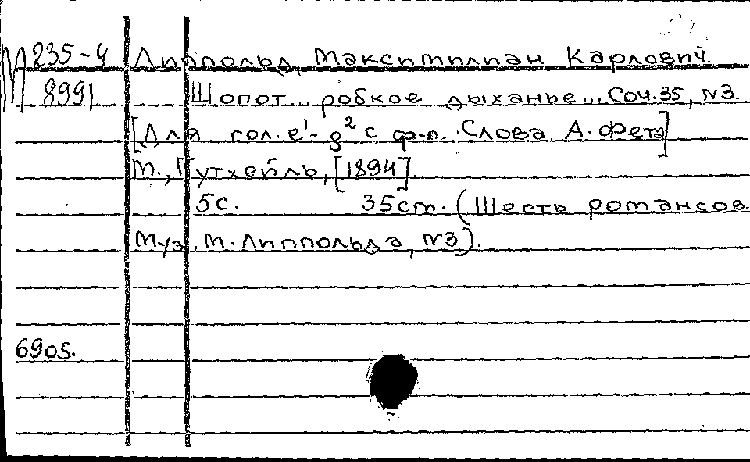 М 235-4 Липпольд, Максимилиан Карлович
8991 Шопот... робкое дыханье... Соч.35, №3
[Для гол. e¹-g² с ф-п. Слова А. Фета]
М., Гутхейль, [1894].
5с. 35см. (Шесть романсов
Муз. М. Липпольда, №3).
6905.